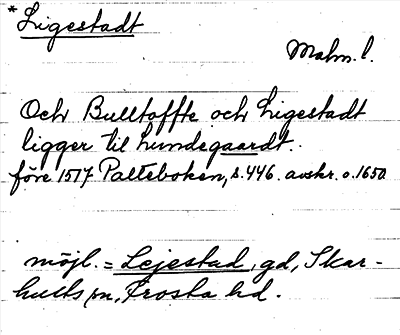 * Ligestadt
Malm. l.
Och Bulltoffte och Ligestadt
ligger til Lundegaardt.
före 1517 Palteboken, s. 446. avskr. o. 1650
möjl. = Lejestad, gd, Skar-
hults sn, Frosta hd.